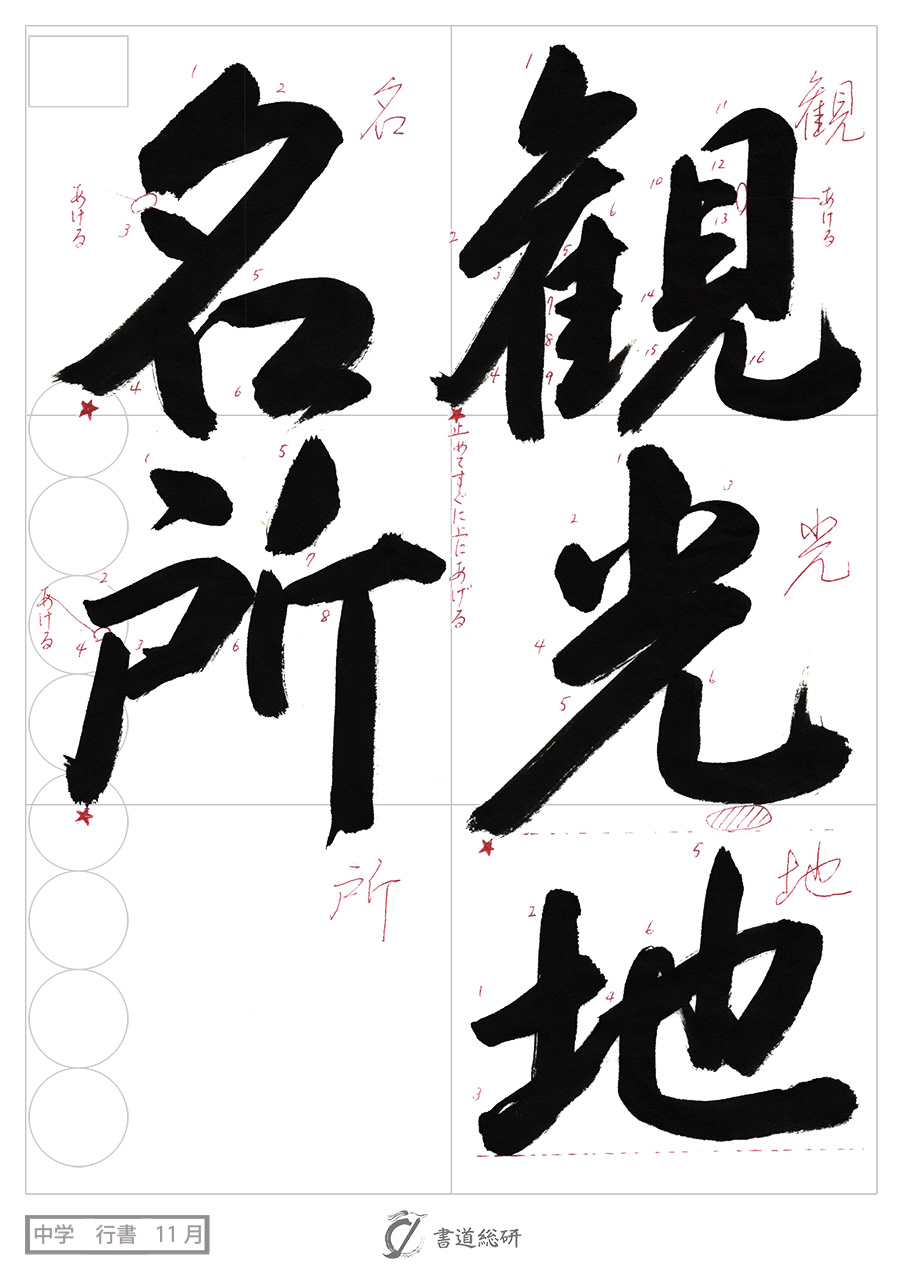 観光地
名所
観
光
地
名
所
あける
止めてすぐに上にあげる
あける
あける
中学 行書 11月
書道総研